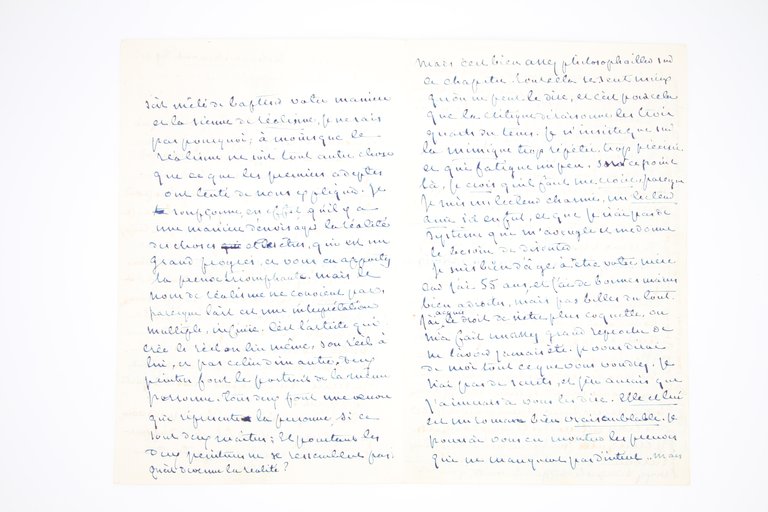 soit mêlé de baptiser votre manière
et la sienne de réalisme, je ne sais
pas pourquoi; à moins que le
réalisme ne soit tout autre chose
que ce que les premiers adeptes
ont tenté de nous expliquer. Je
soupçonne, en effet, qu'il y a
une manière d'envisager la réalité
des choses et des êtres, qui est un
grand progrès, et vous en apportez
la preuve triomphante. Mais le
nom de réalisme ne convient pas,
parceque l'art est une interprétation
multiple, infinie. C'est l'artiste qui
crée le réel en lui même, son réel à
lui, et pas celui d'un autre. Deux
peintres font le portrait de la même
personne. Tous deux font une œuvre
qui représente la personne, si ce
sont deux maîtres; Et pourtant les
deux peintures ne se ressemblent pas.
qu'est devenue la réalité?
Mais c'est bien assez philosophailler sur
ce chapitre. Tout cela se sent mieux
qu'on ne peut le dire, et c'est pour cela
que la critique déraisonne les trois
quarts du tems. Je n'insiste que sur
la mimique trop répétée, trop précisée
et qui fatigue un peu. Sur ce point
là, je crois qu'il faut me croire, parceque
je suis un lecteur charmé, un lecteur
ami enfin, et que je n'ai pas de
système qui m'aveugle et me donne
le besoin de disputer.
Je suis bien d'âge à être votre mère
car j'ai 55 ans, et j'ai de bonnes mains
bien adroites, mais pas belles du tout.
J'ai acquis le droit de n'être plus coquette, on
m'a fait même grand reproche de
ne l'avoir jamais été. Je vous dirai
de moi tout ce que vous voudrez. Je
n'ai pas de secrets, et j'en aurais que
j'aimerais à vous les dire. Elle et lui
est un roman bien vraisemblable. Je
pourrais vous en montrer les preuves
qui ne manquent pas d'intérêt.. Mais